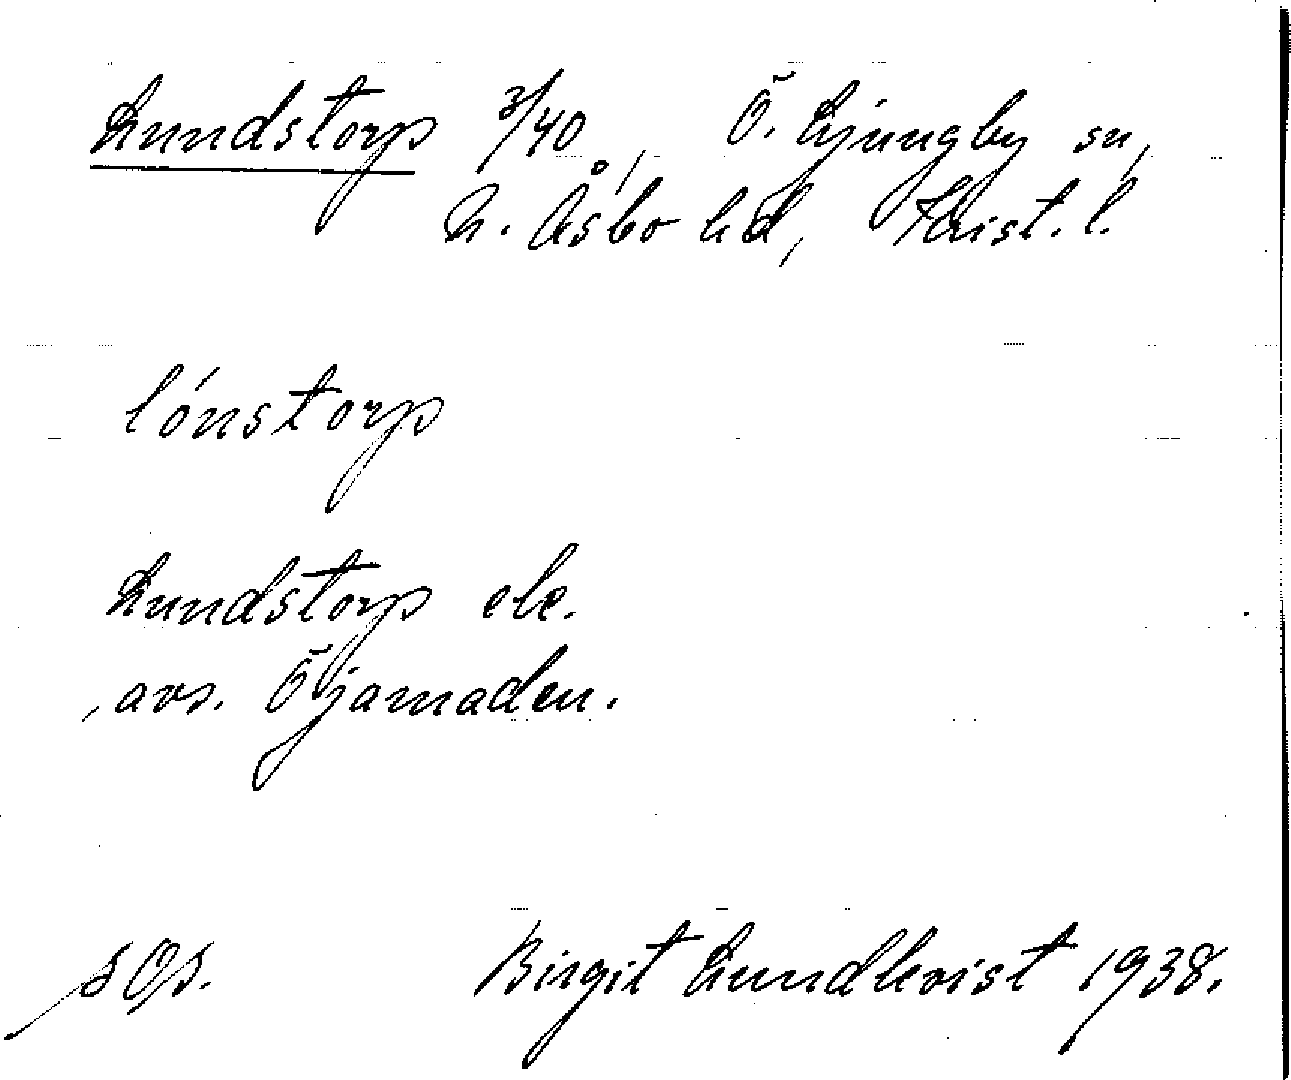 Lundstorp 3/40, Ö. Ljungby sn,
N. Åsbo hd, Krist. l.
lónstorp
Lundstorp ele.
avs. Öjamaden.
sOs. Birgit Lundkvist 1938.